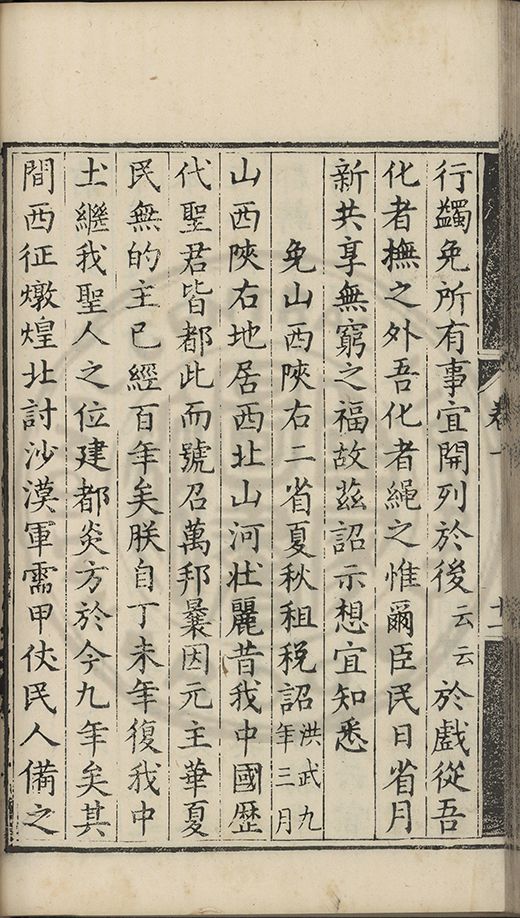 行蠲免所有事宜開列於後云云於戲從吾
化者撫之外吾化者繩之惟爾臣民日省月
新共享無窮之福故茲詔示想宜知悉
免山西陝右二省夏秋租稅詔洪武九年三月
山西陝右地居西北山河壯麗昔我中國歷
代聖君皆都此而號召萬邦曩因元主華夏
民無的主已經百年矣朕自丁未年復我中
土繼我聖人之位建都炎方於今九年矣其
間西征燉煌北討沙漠軍需甲仗民人備之
卷一
十二